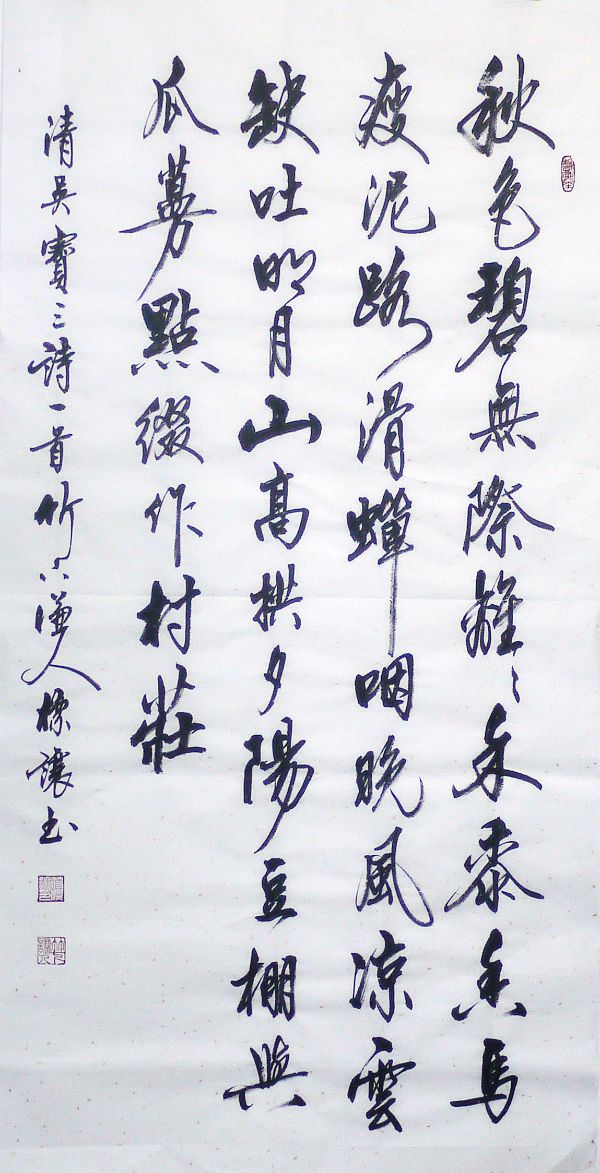 秋色碧無際離〻禾黍香馬
瘦泥路滑蟬咽晚風涼雲
缺吐明月山高拱夕陽豆棚與
瓜蔓點綴作村莊
清吳寶三詩一首竹人讓书